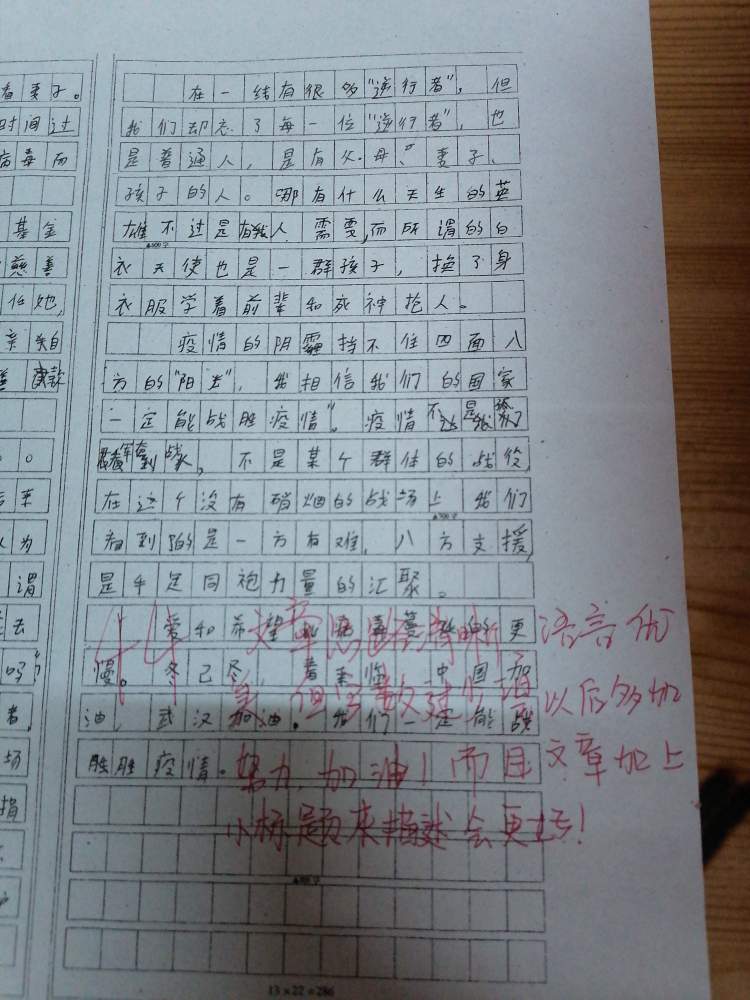 看妻子。
时间过
病毒而
基金
慈善
任她,
亲自
善款
。
后来
人为
谓
去
吗?
者,
场
捐
在一线有很多"逆行者",但
我们却忘了每一位"逆行者",也
是普通人,是有父母、妻子、
孩子的人。哪有什么天生的英
雄不过是有人需要,而所谓的白
衣天使也是一群孩子,换了身
衣服学着前辈和死神抢人。
疫情的阴霾挡不住四面八
方的"阳光",我相信我们的国家
一定能战胜疫情"。疫情不是
,不是某个群体的战役
在这个没有硝烟的战场上我们
看到的是一方有难,八方支援,
是手足同袍力量的汇聚。
爱和希望比病毒蔓延的更
慢。冬已冬,春来临。中国加
油,武汉加油。我们一定能战
胜胜疫情。
44 文章思路清晰语言优
美,但字数过少,以后多加
努力,加油!而且文章加上
小标题来描述会更好!
13×22=286